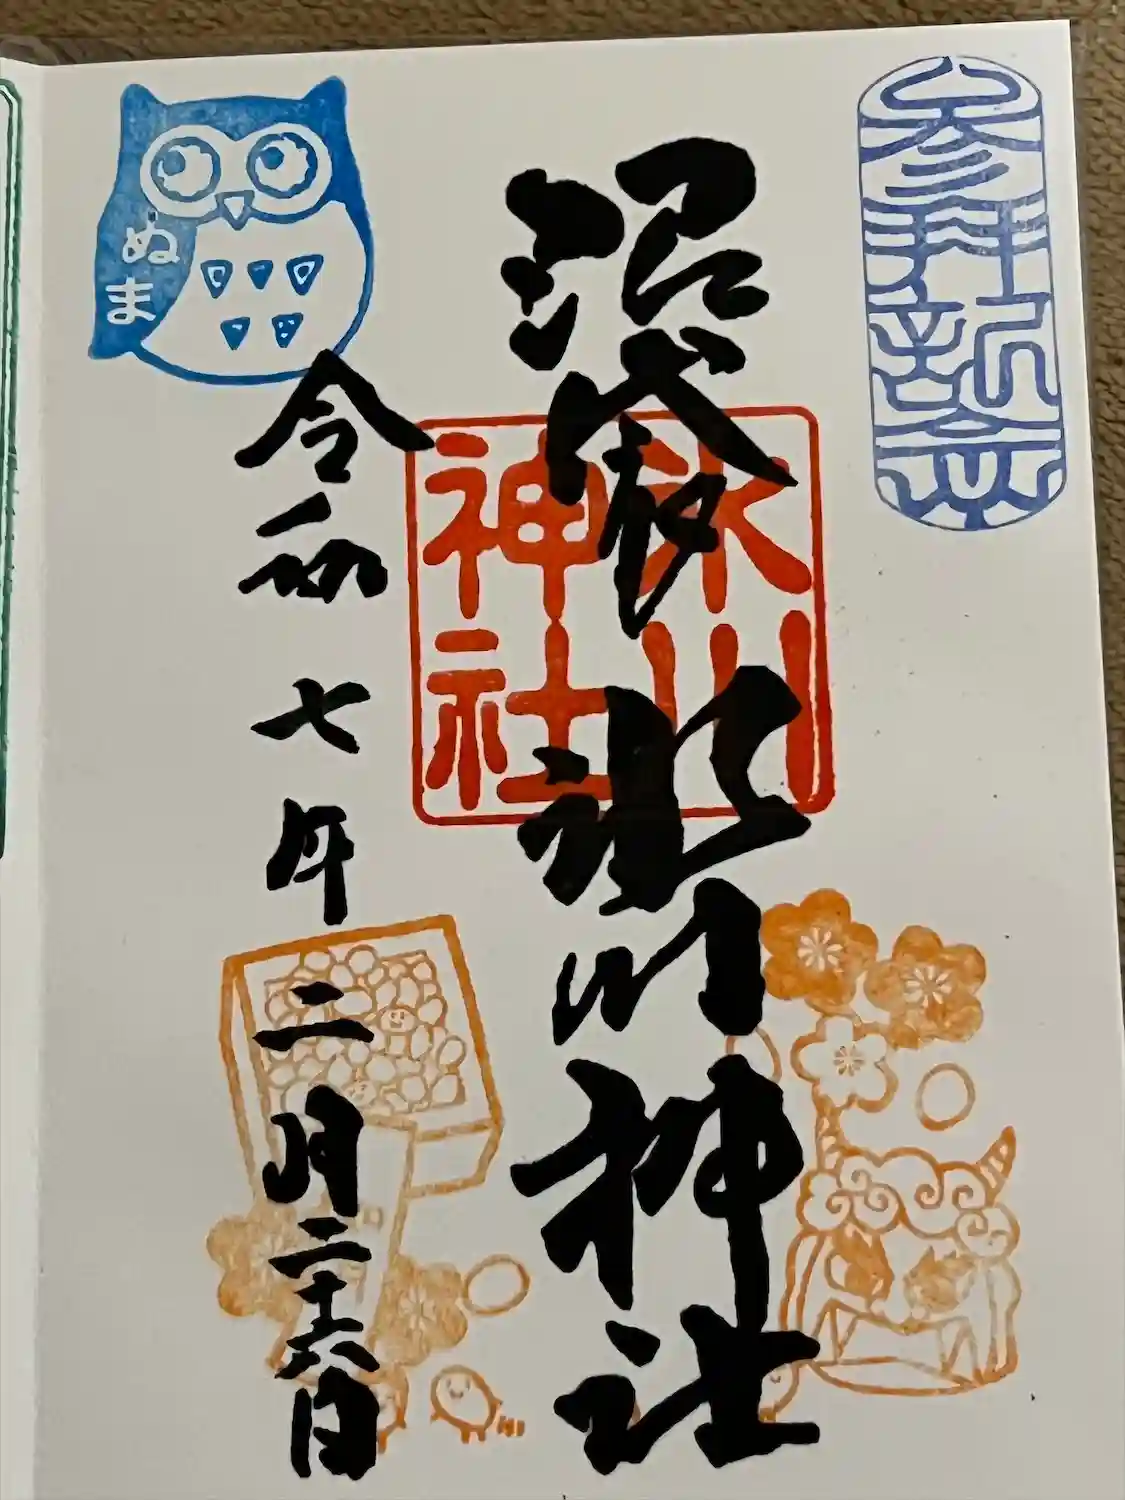 参拝記念
沼袋氷川神社
氷川
神社
ぬま
令和七年二月二十六日